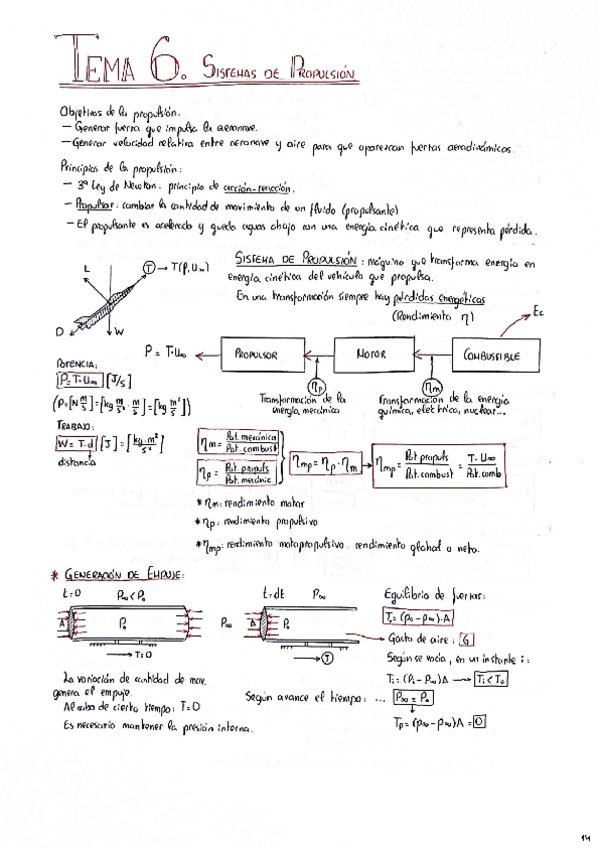 TEMA 6. SISTEMAS DE PROPULSIÓN
Objetivos de la propulsión.
— Generar fuerza que impulsa la aeronave.
— Generar velocidad relativa entre aeronave y aire para que aparezcan fuerzas aerodinámicas.
Principios de la propulsión:
— 3ª Ley de Newton: principio de acción-reacción.
— Propulsar: cambiar la cantidad de movimiento de un fluido (propulsante)
— El propulsante es acelerado y queda aguas abajo con una energía cinética que representa pérdida.
SISTEMA DE PROPULSIÓN: máquina que transforma energía en
energía cinética del vehículo que propulsa.
En una transformación siempre hay pérdidas energéticas
(Rendimiento η)
L
T → T(P,U∞)
D
W
Ec
P = T·U∞
PROPULSOR
MOTOR
COMBUSTIBLE
ηp
ηm
Transformación de la
energía mecánica
Transformación de la energía
química, eléctrica, nuclear...
POTENCIA:
P = T·U∞ [J/s]
(P=[N m/s]=[kg m/s² · m/s]=[kg m²/s³])
TRABAJO:
W = T·d [J] = [kg·m²/s²]
distancia
ηm = Pot. mecánica / Pot. combust
ηp = Pot. propuls / Pot. mecánic
ηmp = ηp · ηm → ηmp = Pot propuls / Pot. combust = T·U∞ / Pot. comb
* ηm: rendimiento motor
* ηp: rendimiento propulsivo
* ηmp: rendimiento motopropulsivo: rendimiento global o neto.
* GENERACIÓN DE EMPUJE:
t=0 P∞ < P₀
A P₀ P∞
→ T=0
t=dt P∞
A P₀
→ T
Equilibrio de fuerzas:
T₀=(p₀-p∞)·A
Gasto de aire: G
Según se vacía, en un instante i:
Ti=(Pi-P∞)A → Ti<T₀
La variación de cantidad de mov.
genera el empuje.
Al cabo de cierto tiempo: T=0
Es necesario mantener la presión interna.
Según avance el tiempo: ... P∞ = P₀
Tp=(p∞-p∞)A=0
14